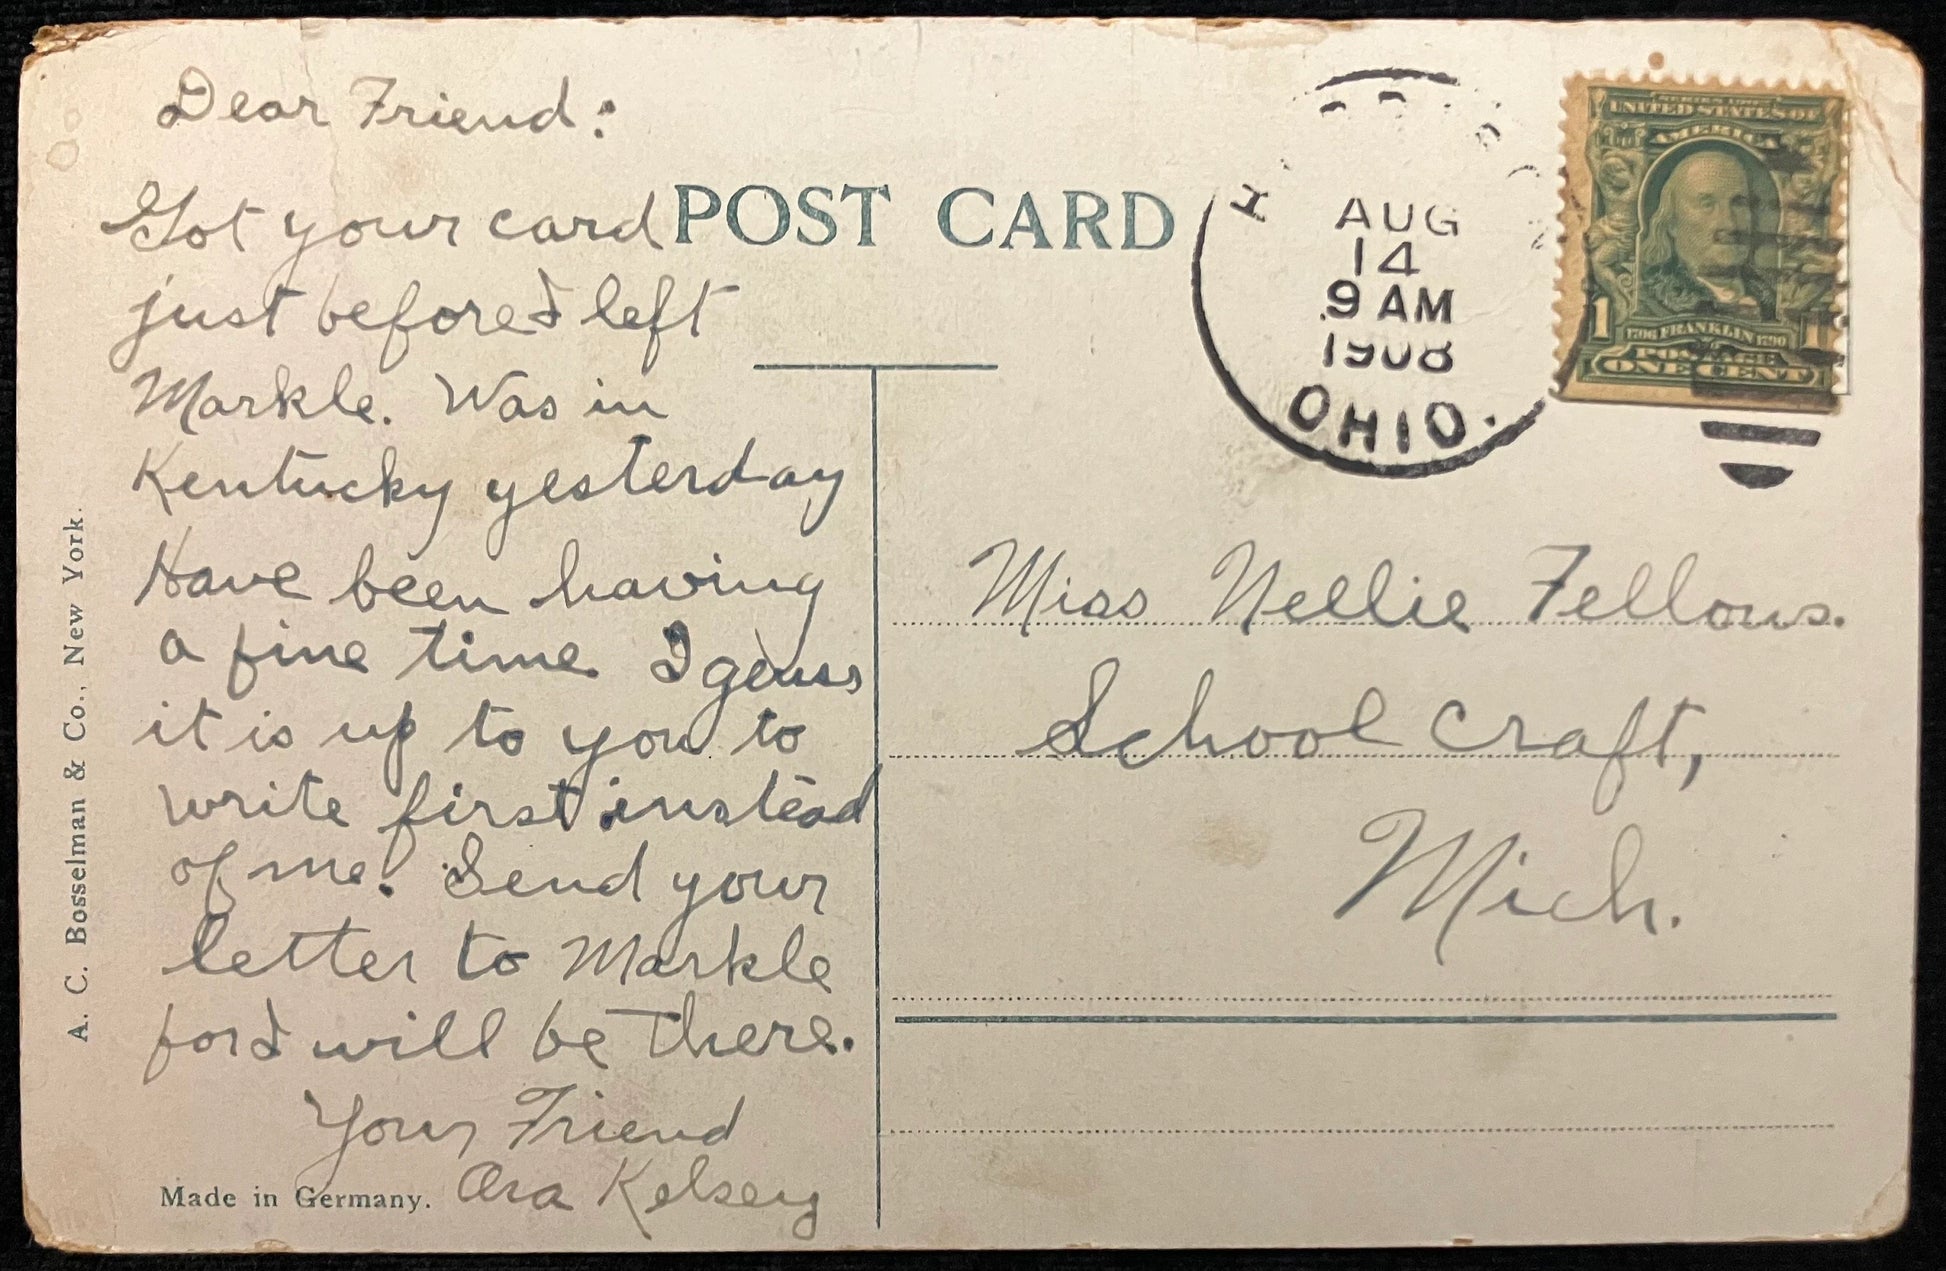 Dear Friend:
Got your card
just before I left
Markle. Was in
Kentucky yesterday
Have been having
a fine time. I geuss
it is up to you to
write first instead
of me. Send your
letter to Markle
for I will be there.
Your Friend
Ora Kelsey
Made in Germany.
A. C. Bosselman & Co., New York.
POST CARD
AUG
14
9 AM
1908
OHIO.
UNITED STATES OF
AMERICA
1706 FRANKLIN 1790
1 POSTAGE 1
ONE CENT
Miss Nellie Fellows.
School Craft,
Mich.